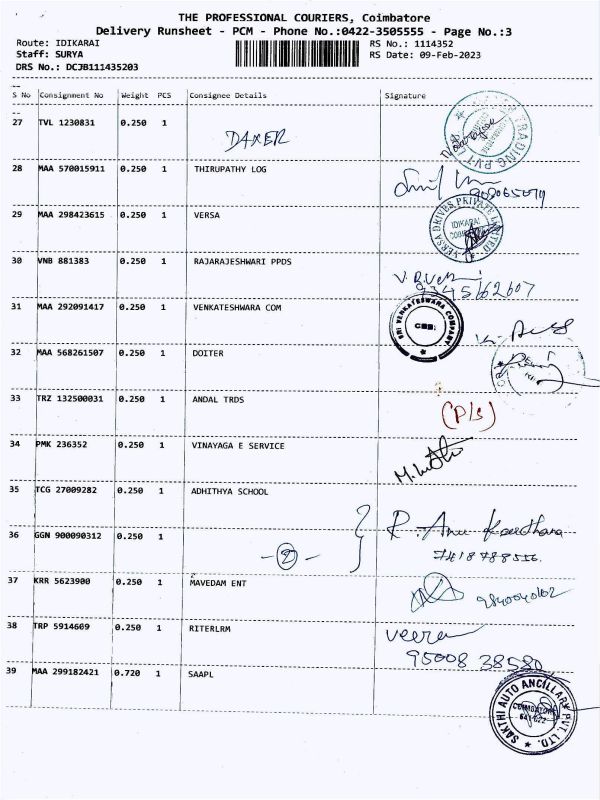 THE PROFESSIONAL COURIERS, Coimbatore
Delivery Runsheet - PCM - Phone No.:0422-3505555 - Page No.:3
Route: IDIKARAI RS No.: 1114352
Staff: SURYA RS Date: 09-Feb-2023
DRS No.: DCJB111435203
S No Consignment No Weight PCS Consignee Details Signature
27 TVL 1230831 0.250 1
DAXER
TRADING PVT L
28 MAA 570015911 0.250 1 THIRUPATHY LOG
29 MAA 298423615 0.250 1 VERSA
VERSA DRIVES PRIVATE LIMITED
IDIKARAI
30 VNB 881383 0.250 1 RAJARAJESHWARI PPDS
31 MAA 292091417 0.250 1 VENKATESHWARA COM
SRI VENKATESWARA COMPANY
CBE
32 MAA 568261507 0.250 1 DOITER
33 TRZ 132500031 0.250 1 ANDAL TRDS
34 PMK 236352 0.250 1 VINAYAGA E SERVICE
35 TCG 27009282 0.250 1 ADHITHYA SCHOOL
36 GGN 900090312 0.250 1
-2-
7418788556
37 KRR 5623900 0.250 1 MAVEDAM ENT
38 TRP 5914609 0.250 1 RITERLRM
veera
95008 38580
39 MAA 299182421 0.720 1 SAAPL
SAKTHI AUTO ANCILLARY PVT. LTD.
COIMBATORE